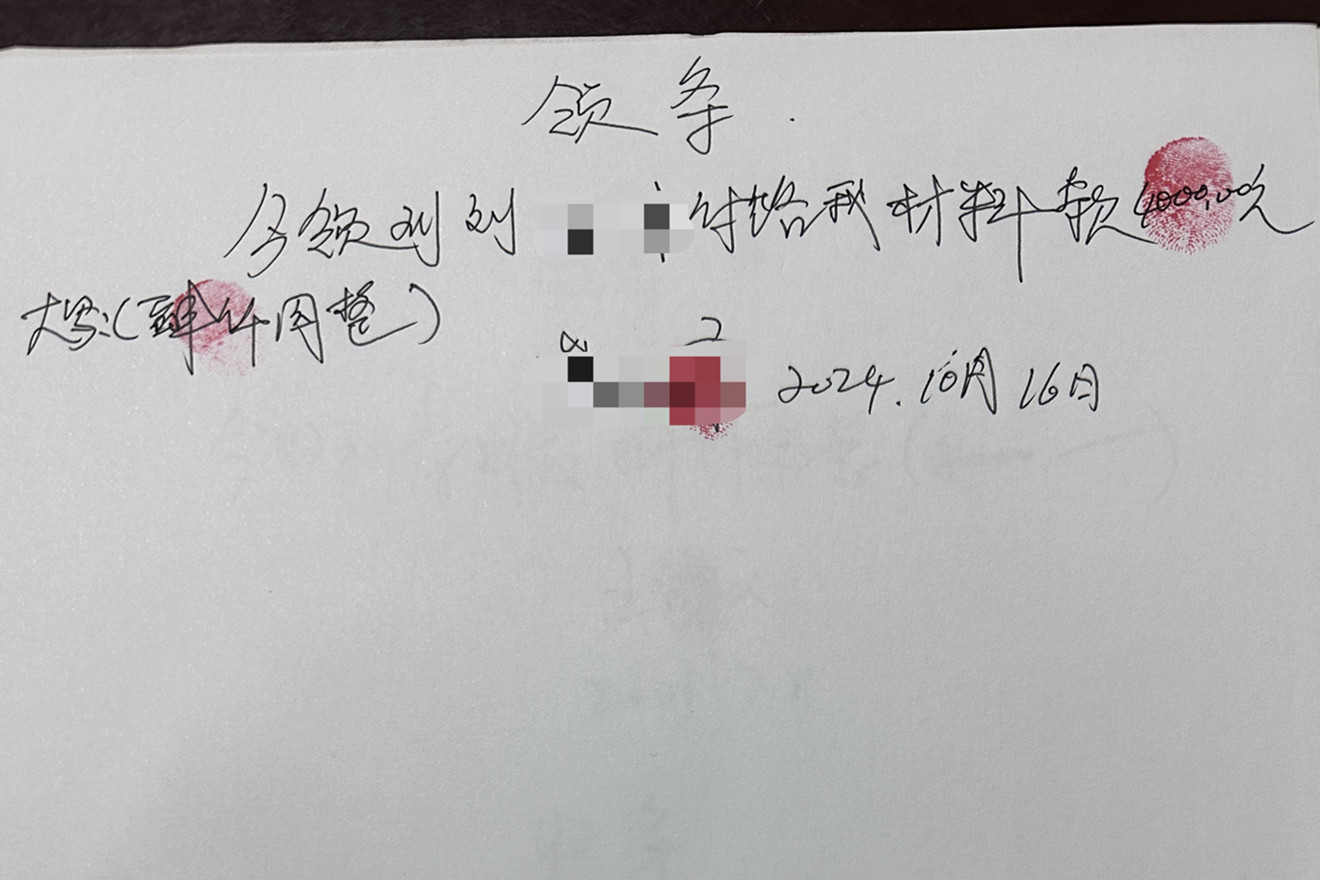 领条.
今领到刘 付给我材料款4000.00元
大写:(肆仟圆整)
2024.10月16日